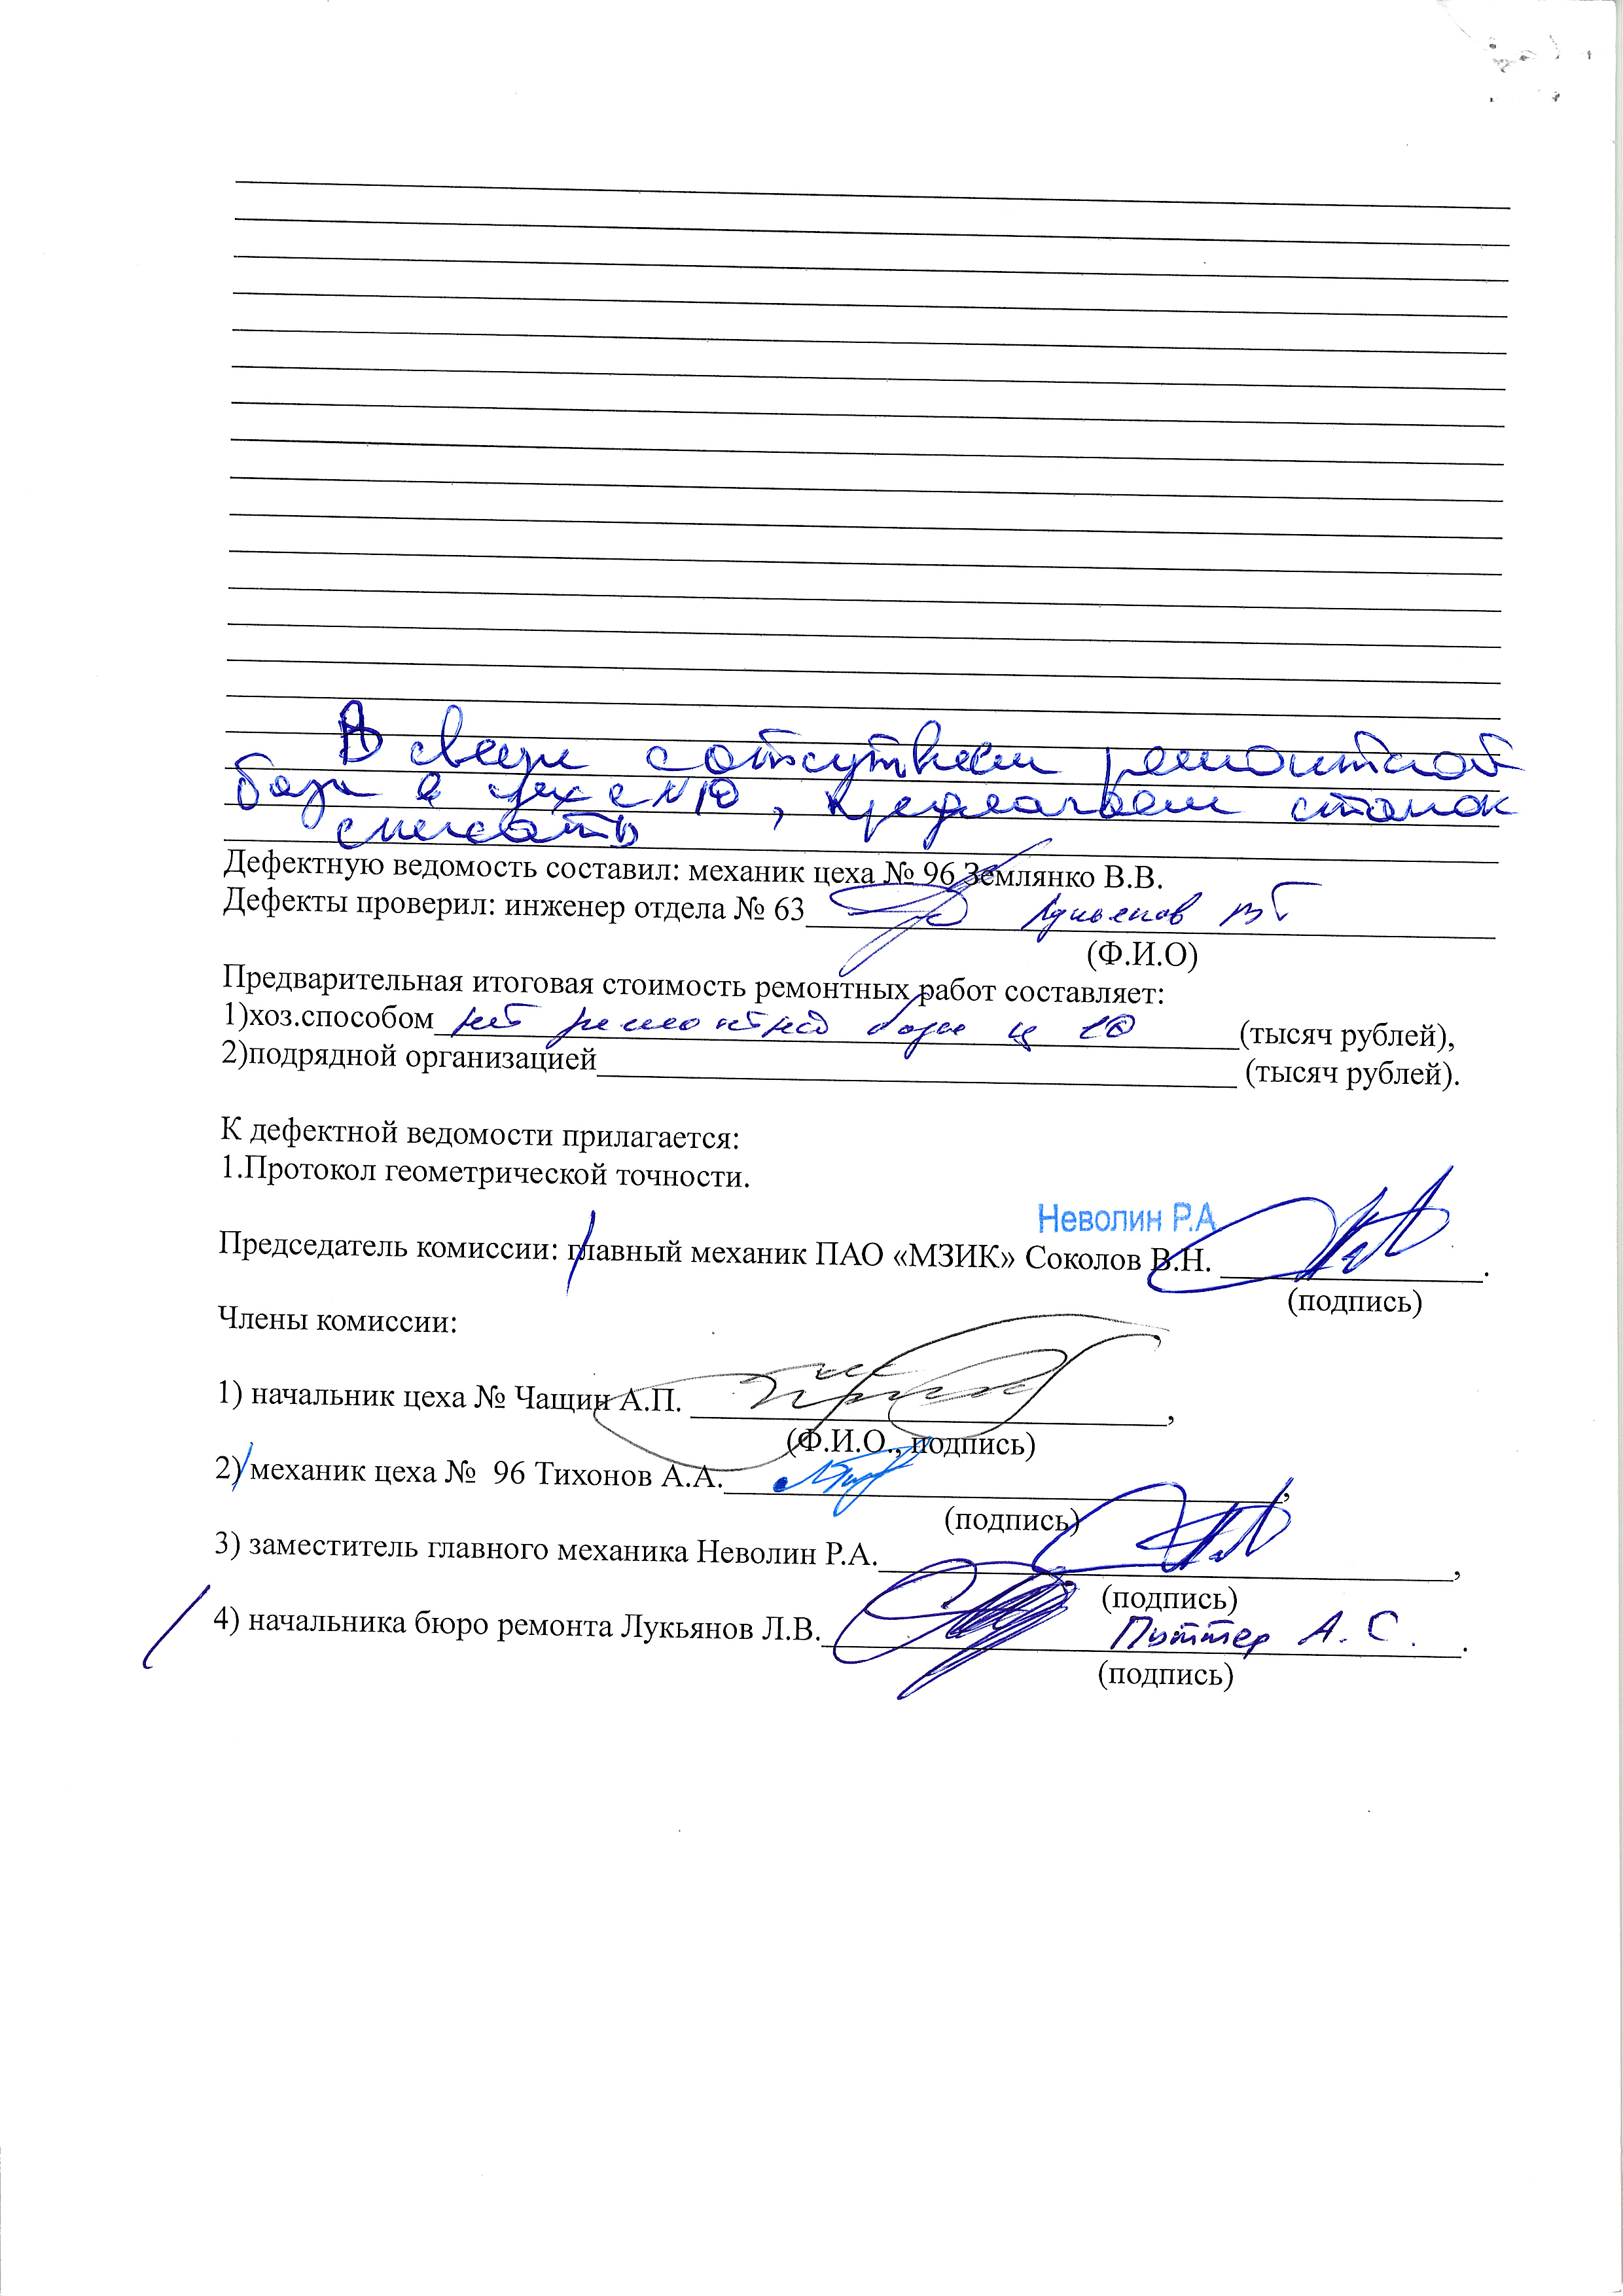 В связи с отсутствием ремонтной
базы в цехе №10, предлагаем станок
списать
Дефектную ведомость составил: механик цеха № 96 Землянко В.В.
Дефекты проверил: инженер отдела № 63 Лукьянов
(Ф.И.О)
Предварительная итоговая стоимость ремонтных работ составляет:
1)хоз.способом нет ремонтной базы ц 10 (тысяч рублей),
2)подрядной организацией (тысяч рублей).
К дефектной ведомости прилагается:
1.Протокол геометрической точности.
Неволин Р.А
Председатель комиссии: главный механик ПАО «МЗИК» Соколов В.Н.
(подпись)
Члены комиссии:
1) начальник цеха № Чащин А.П.,
(Ф.И.О., подпись)
2) механик цеха № 96 Тихонов А.А.,
(подпись)
3) заместитель главного механика Неволин Р.А.,
(подпись)
4) начальника бюро ремонта Лукьянов Л.В. Питтер А.С.
(подпись)